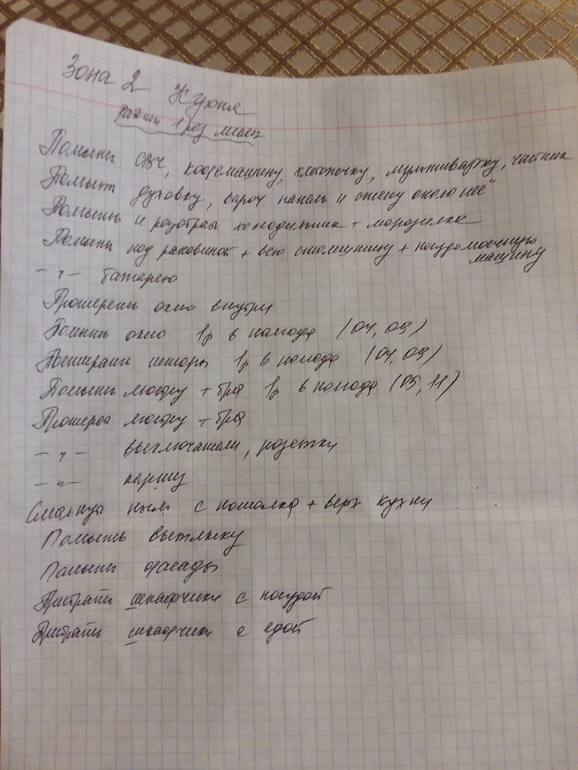 Зона 2 Кухня
раз 1 рез месяц
Помыть СВЧ, кофемашину, хлебопечку, мультиварку, чайник
Помыть духовку, вароч панель и стену около неё
Помыть и разобрать холодильник + морозилка
Помыть под раковиной + всю столешницу + посудомоечную
машину
— " — батарею
Протереть окно внутри
Помыть окно 1р в полгода (04, 09)
Постирать шторы 1р в полгода (04, 09)
Помыть люстру + бра 1р в полгода (05, 11)
Протереть люстру + бра
— " — выключатели, розетки
— " — карниз
Смахнуть пыль с потолка + верх кухни
Помыть вытяжку
Помыть фасады
Прибрать шкафчики с посудой
Прибрать шкафчики с едой